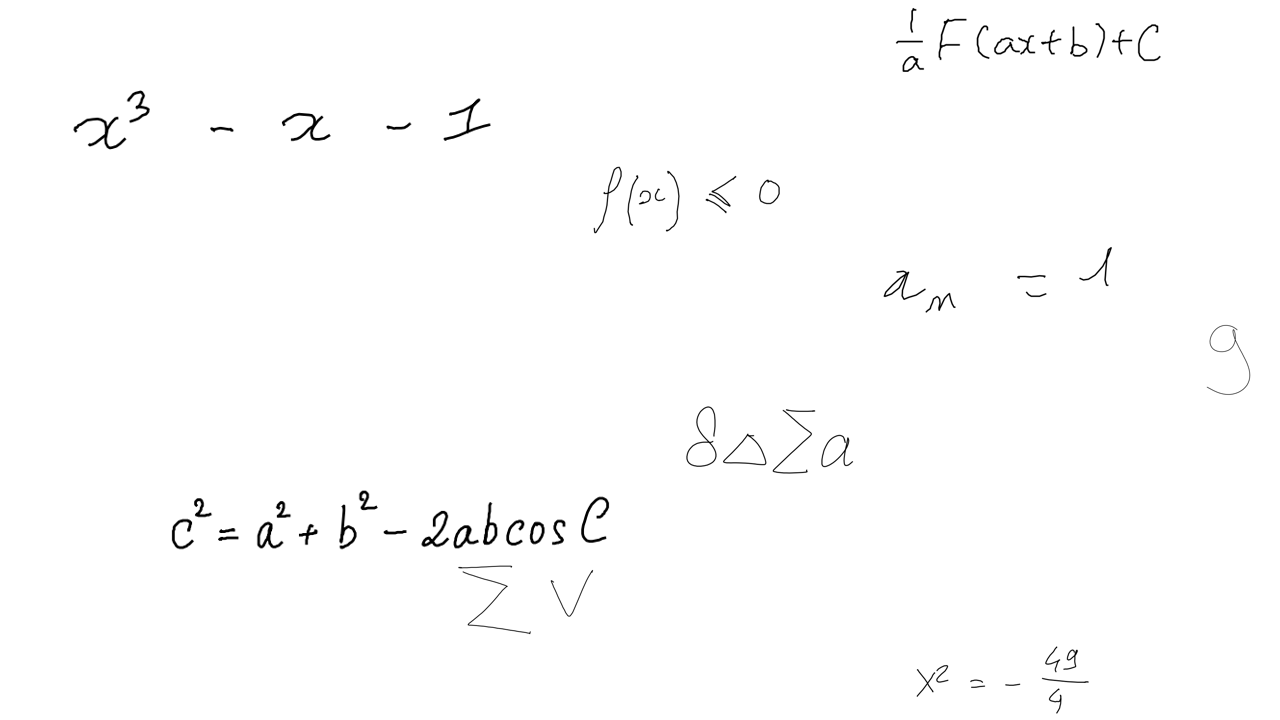 1/a F(ax+b)+C
x³ - x - 1
f(x) ⩽ 0
aₙ = 1
g
δ△∑a
c² = a² + b² - 2abcosC
∑ V
x² = - 49/4